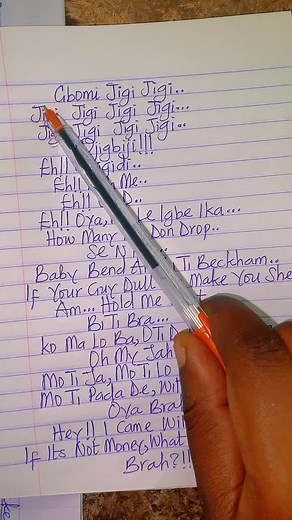 Gbomi Jigi Jigi..
Jigi Jigi Jigi Jigi...
Jigi Jigi Jigi Jigi..
Jigbiji!!!
Eh!! gidi..
Eh!! Me..
Eh!! D..
Eh!! Oya, Le Igbe Ika...
How Many Don Drop..
Se N
Baby Bend A Ti Beckham..
If Your Guy Dull Make You She
Am... Hold Me t
Bi Ti Bra...
Ko Ma Lo Ba, OTi D
Oh My Jah
Mo Ti Ja, Mo Ti Lo
Mo Ti Pada De, Wit
Oya Brah
Hey!! I Came Wi
If Its Not Money, What
Brah?!!